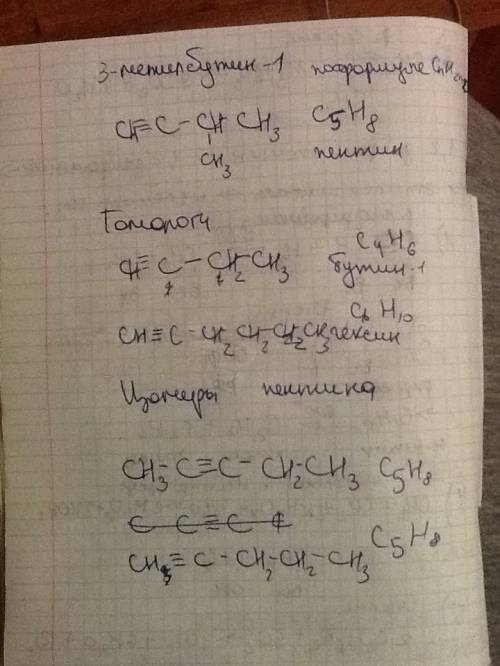 3-метилбутин-1 по формуле CnH2n-2
CH≡C-CH CH3 C5H8
CH3 пентин
Гомологи
CH≡C-CH2-CH3 C4H6
бутин-1
C6H10
CH≡C-CH2CH2CH2CH3 гексин
Изомеры пентина
CH3-C≡C-CH2-CH3 C5H8
C C≡C C
CH≡C-CH2-CH2-CH3 C5H8